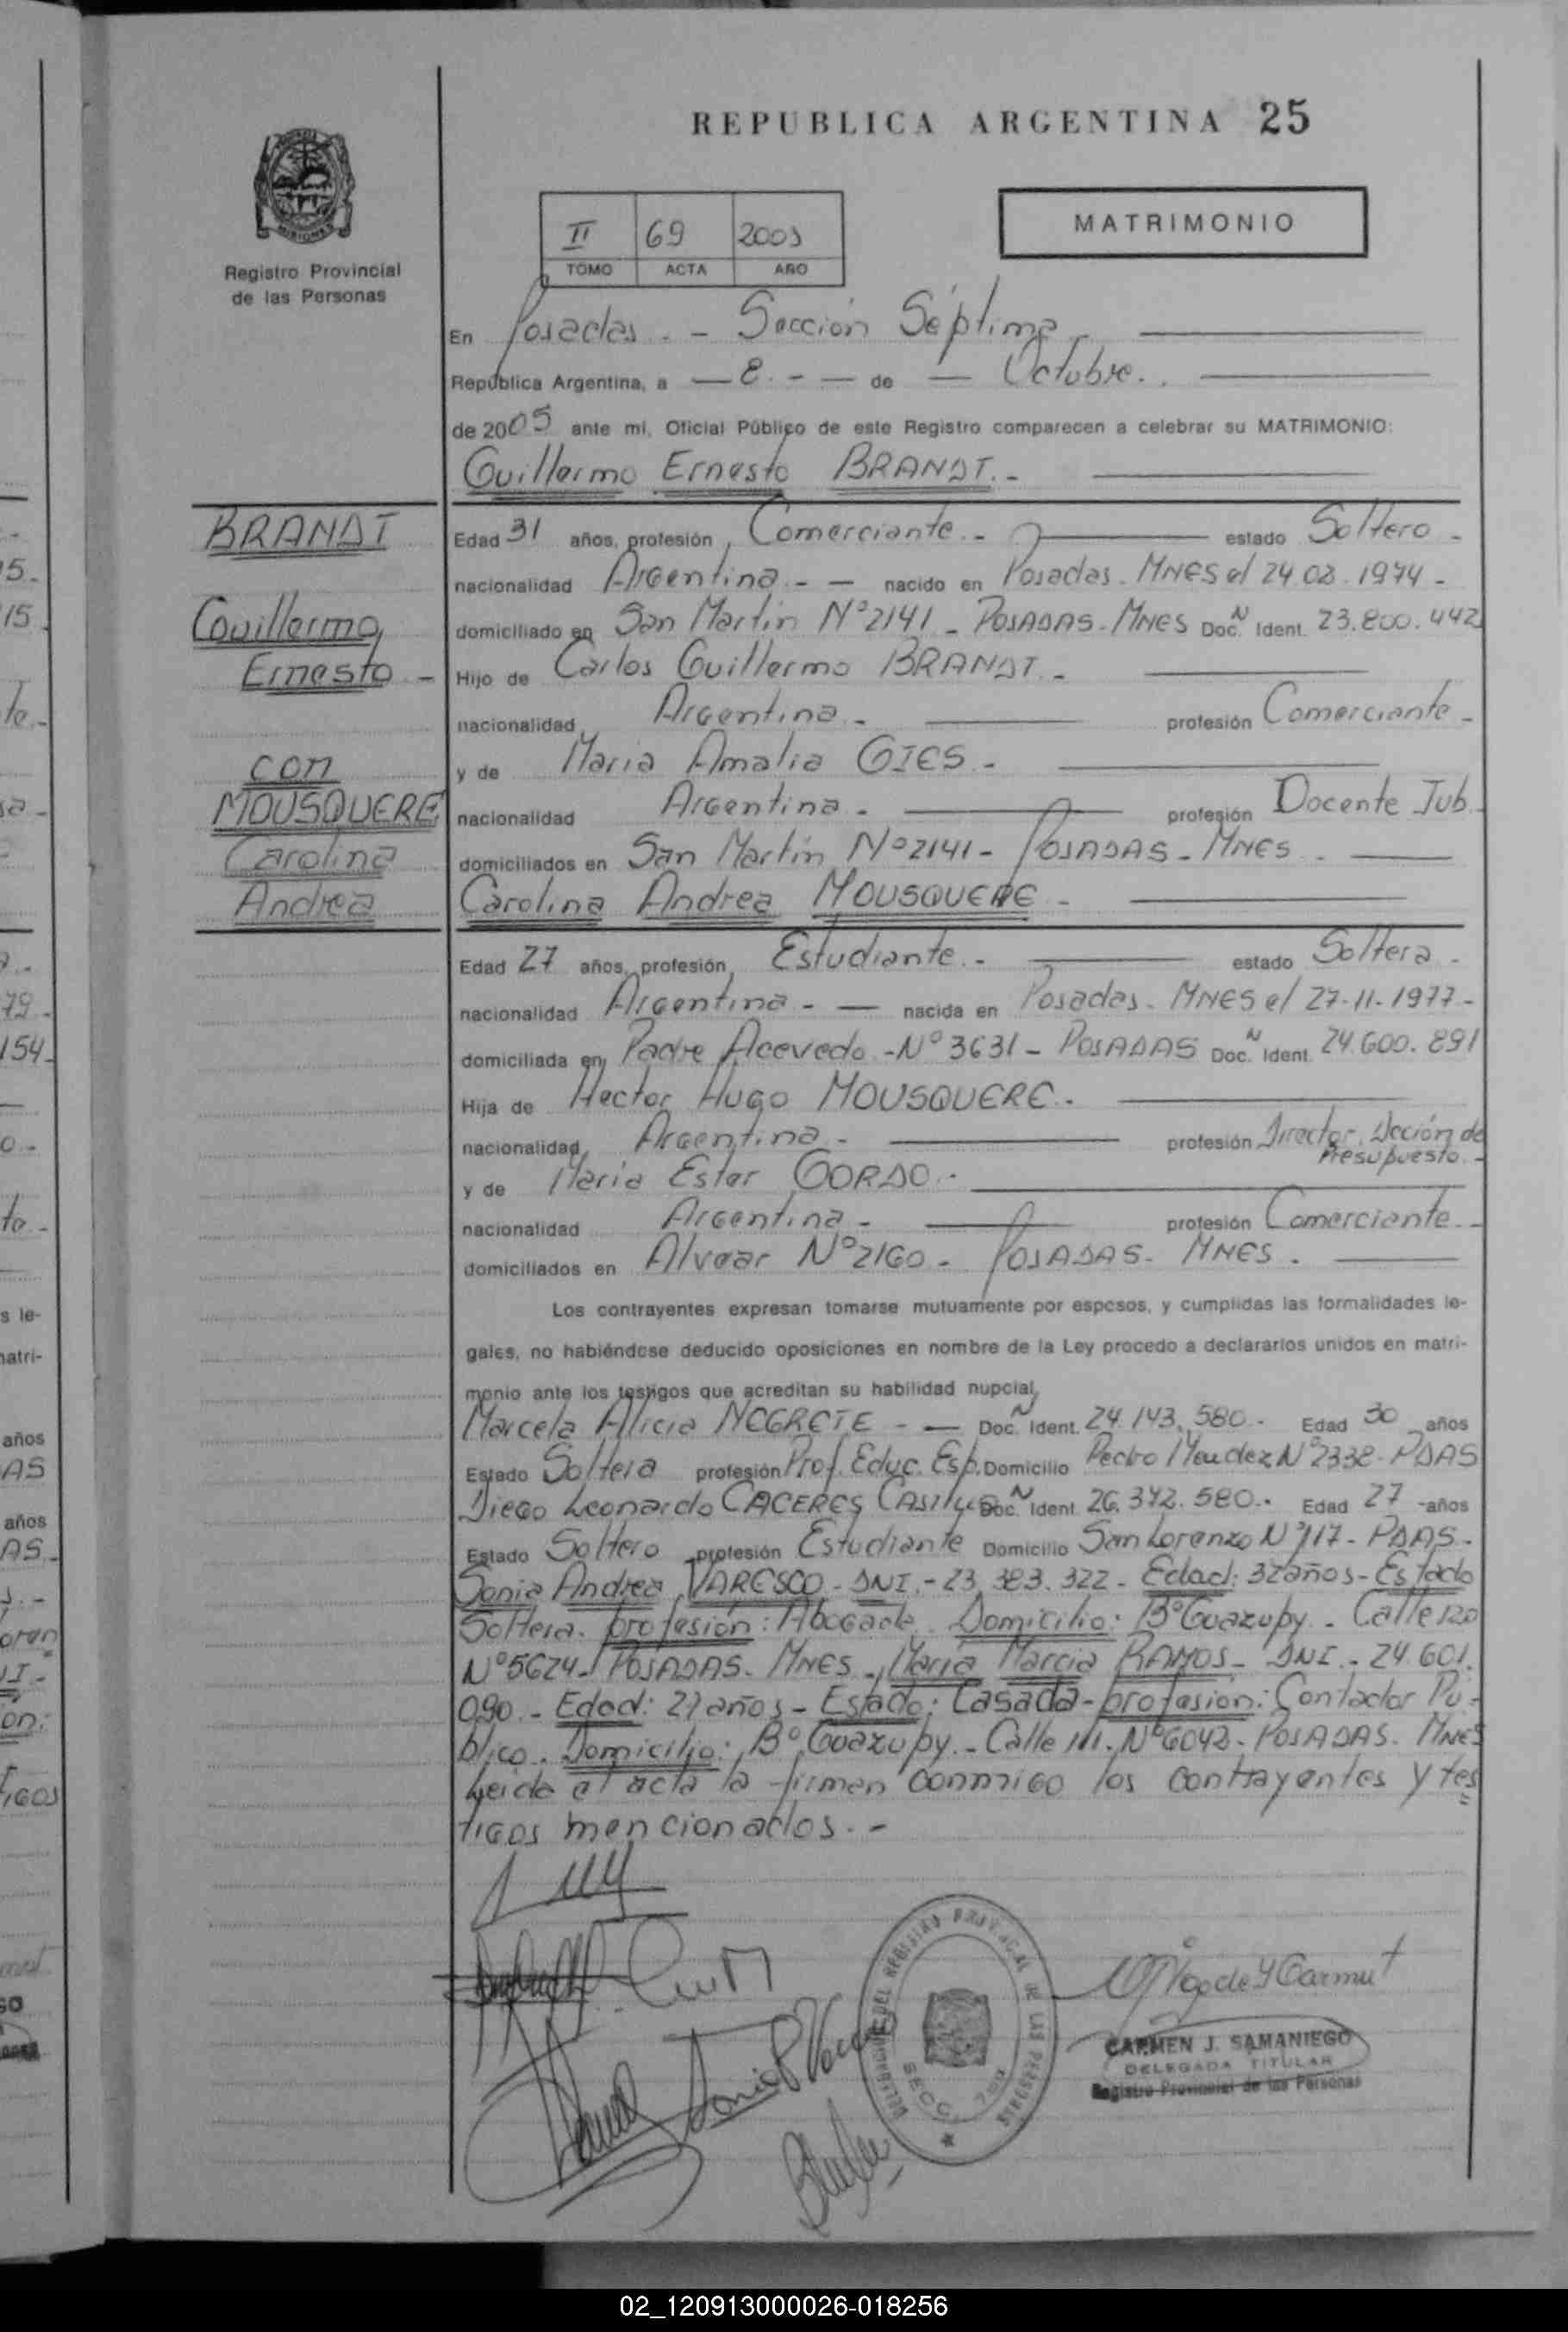 REPUBLICA ARGENTINA 25
MISIONES
Registro Provincial
de las Personas
II 69 2005
TOMO ACTA AÑO
MATRIMONIO
En Posadas. - Sección Séptima
República Argentina, a — 8. - — de — Octubre. .
de 2005 ante mí, Oficial Público de este Registro comparecen a celebrar su MATRIMONIO:
Guillermo Ernesto BRANDT. -
BRANDT
Guillermo
Ernesto -
con
MOUSQUERE
Carolina
Andrea
Edad 31 años, profesión Comerciante. - estado Soltero -
nacionalidad Argentina. - — nacido en Posadas - MNES el 24.08.1974 -
domiciliado en San Martín Nº 2141 - POSADAS - MNES Doc. N Ident. 23.800.442
Hijo de Carlos Guillermo BRANDT. -
nacionalidad Argentina. - profesión Comerciante -
y de Maria Amalia GIES. -
nacionalidad Argentina. - profesión Docente Jub.
domiciliados en San Martín Nº 2141 - POSADAS - MNES .
Carolina Andrea MOUSQUERE -
Edad 27 años, profesión Estudiante. - estado Soltera -
nacionalidad Argentina - — nacida en Posadas - MNES el 27-11-1977 -
domiciliada en Padre Acevedo - Nº 3631 - POSADAS Doc. N Ident. 24.600.891
Hija de Hector Hugo MOUSQUERE. -
nacionalidad Argentina - profesión Director Dcción de
Presupuesto. -
y de Maria Ester GORDO. -
nacionalidad Argentina - profesión Comerciante. -
domiciliados en Alvear Nº 2160 - POSADAS - MNES .
Los contrayentes expresan tomarse mutuamente por esposos, y cumplidas las formalidades le-
gales, no habiéndose deducido oposiciones en nombre de la Ley procedo a declararlos unidos en matri-
monio ante los testigos que acreditan su habilidad nupcial,
Marcela Alicia NEGRETE - — Doc. N Ident. 24.143.580. - Edad 30 años
Estado Soltera profesión Prof. Educ. Esp. Domicilio Pedro Mendez Nº 2338 - PDAS
Diego Leonardo CACERES Doc. N Ident. 26.372.580. - Edad 27 años
Estado Soltero profesión Estudiante Domicilio San Lorenzo Nº 117 - PDAS -
Sonia Andrea VARESCO - DNI. - 23.383.322 - Edad: 32 años - Estado
Soltera. profesión: Abogada. Domicilio: Bº Guazupy - Calle 120
Nº 5624 - POSADAS - MNES - María Marcia RAMOS - DNI. - 24.601.
090. - Edad: 29 años - Estado: Casada - profesión: Contador Pú-
blico. Domicilio: Bº Guazupy. - Calle 111. Nº 6042 - POSADAS - MNES
Leida el acta la firman conmigo los contrayentes y tes
tigos mencionados. -
DELEGACION DEL REGISTRO PROVINCIAL DE LAS PERSONAS
SECC. 7ma
CARMEN J. SAMANIEGO
DELEGADA TITULAR
Registro Provincial de las Personas
02_120913000026-018256